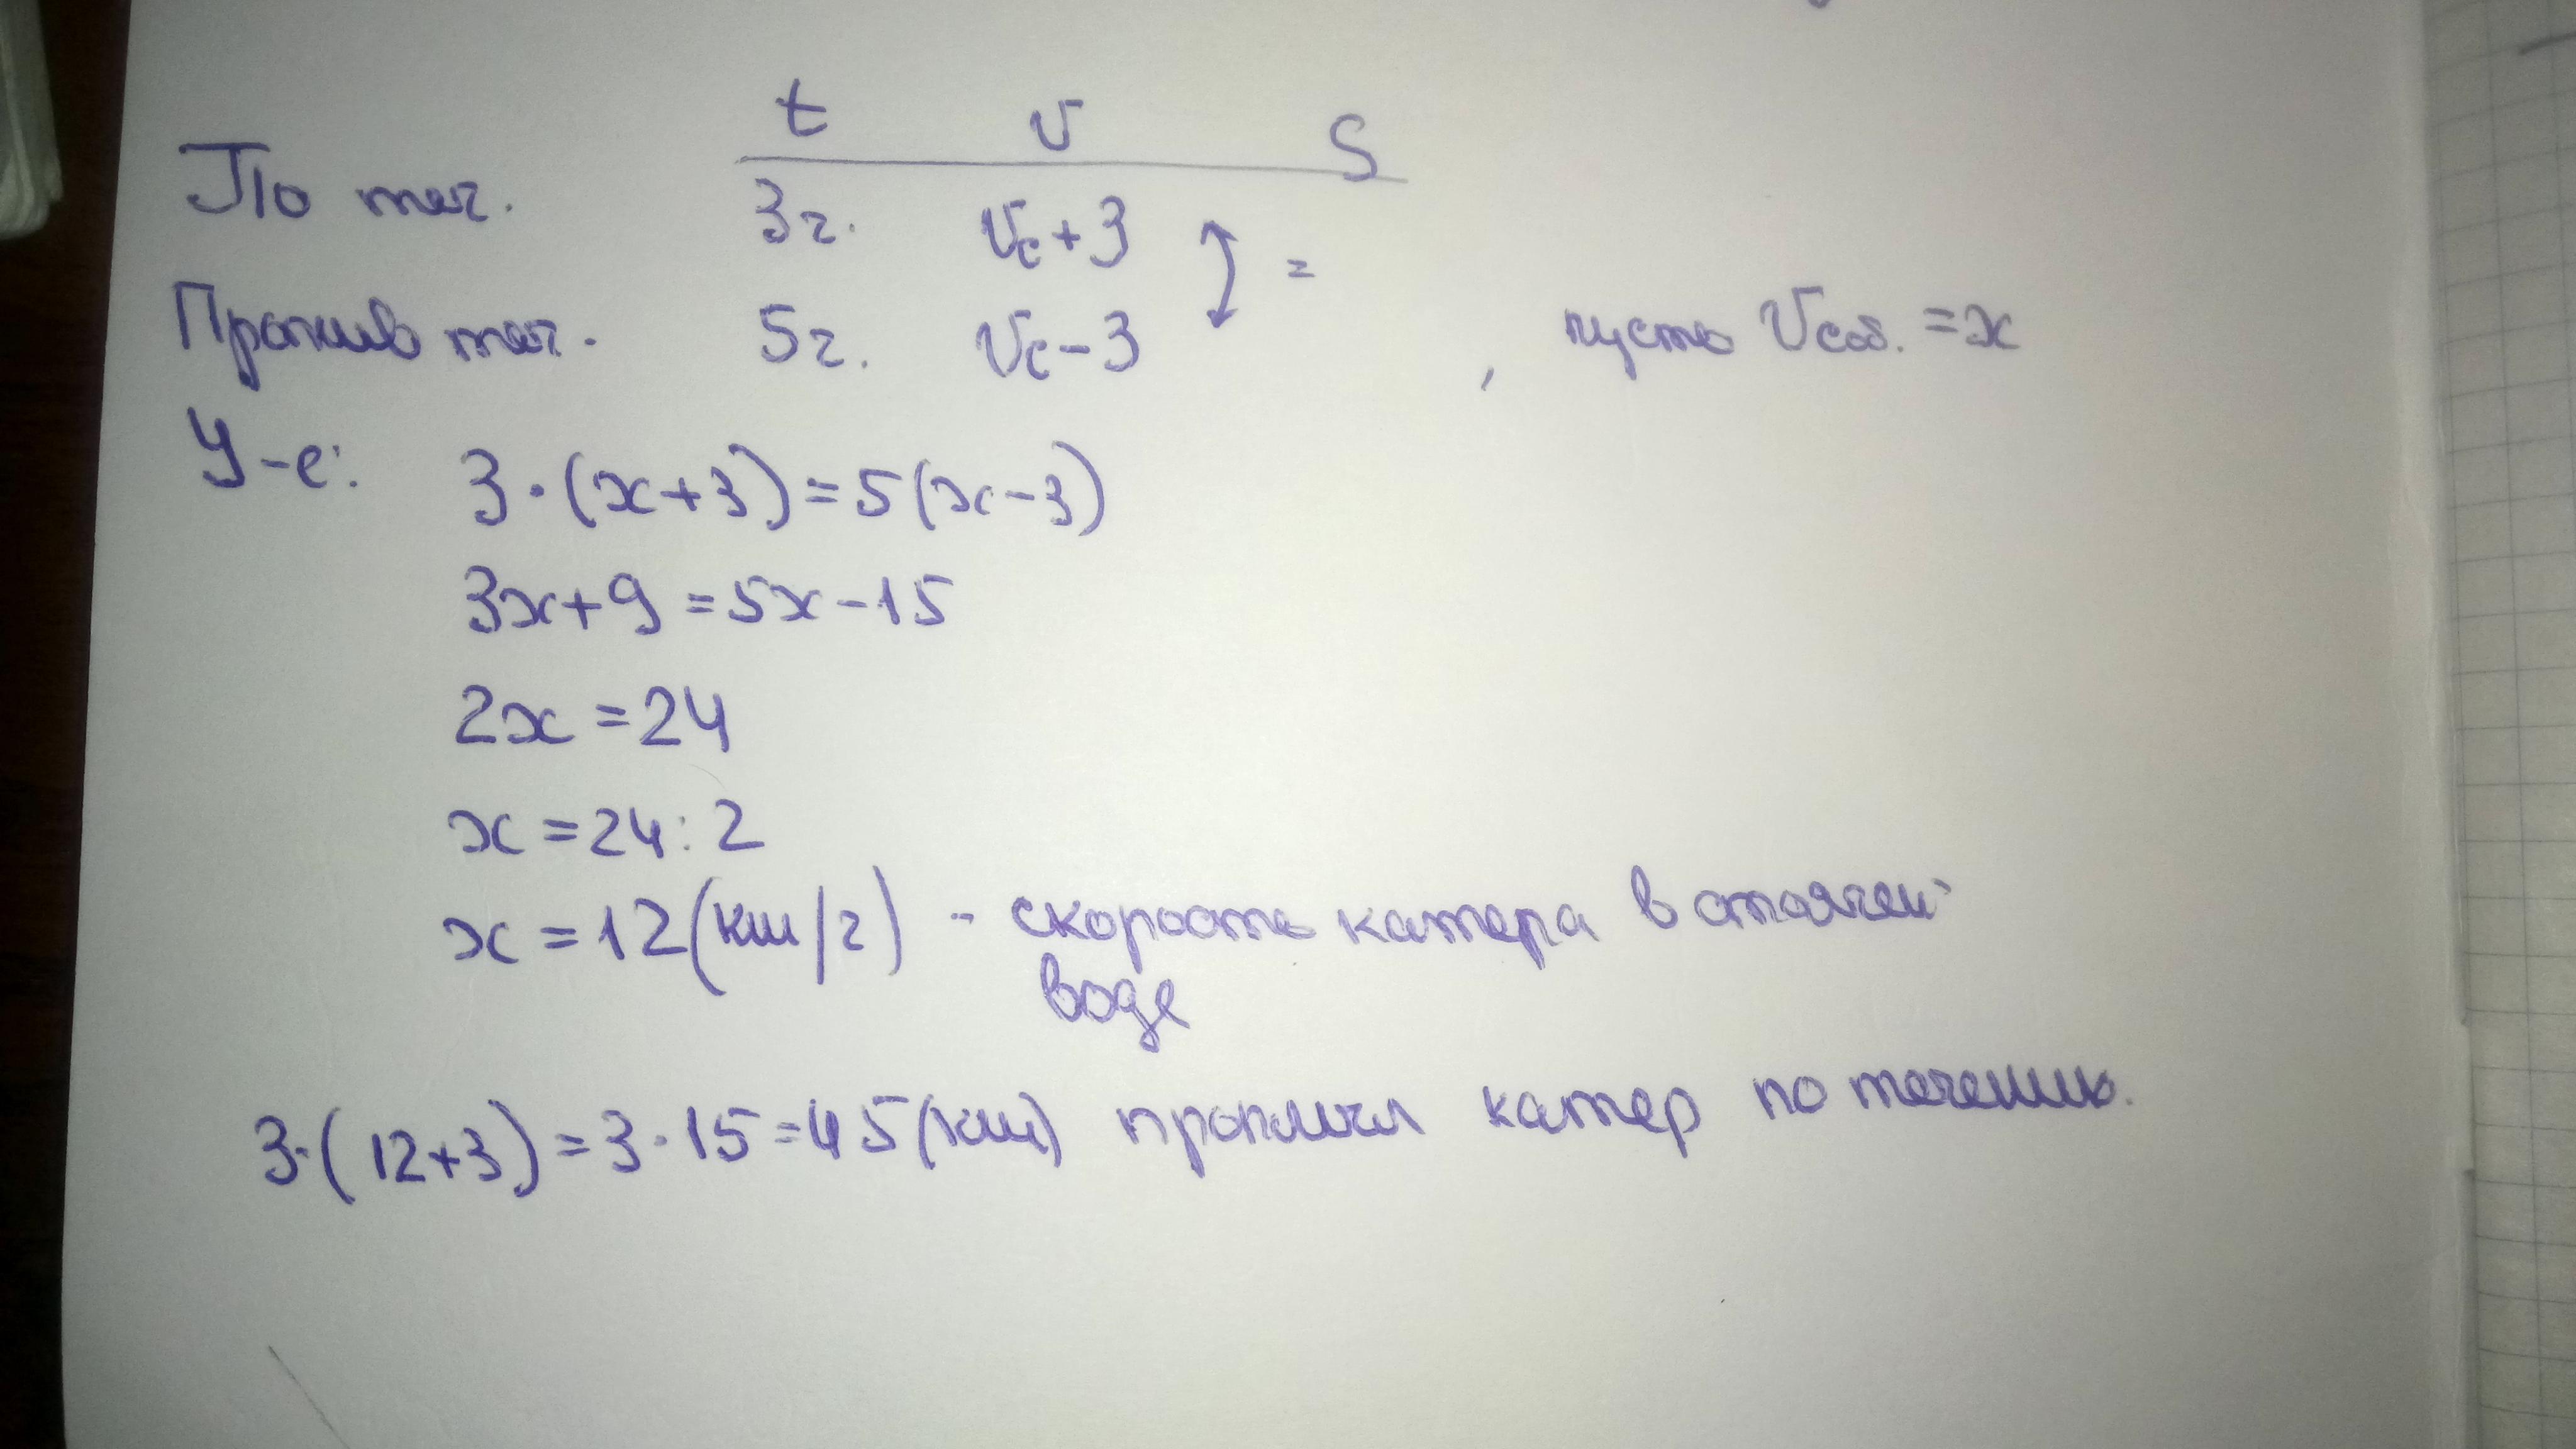 t v S
По теч. 3г. Vc+3
=
Против теч. 5г. Vc-3 , пусть Vсоб. =x
У-е: 3·(x+3)=5(x-3)
3x+9=5x-15
2x=24
x=24:2
x=12(км/г) - скорость катера в стоячей
воде
3·(12+3)=3·15=45(км) проплыл катер по течению.